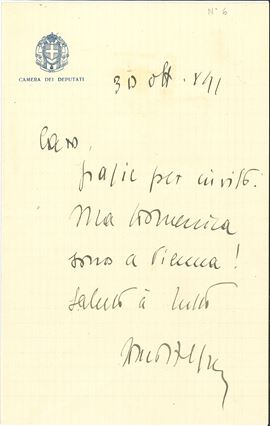 N° 6
CAMERA DEI DEPUTATI
30 ott. XVI
Caro,
grazie per invito.
Ma Domenica
sono a Vienna!
Saluti a tutti